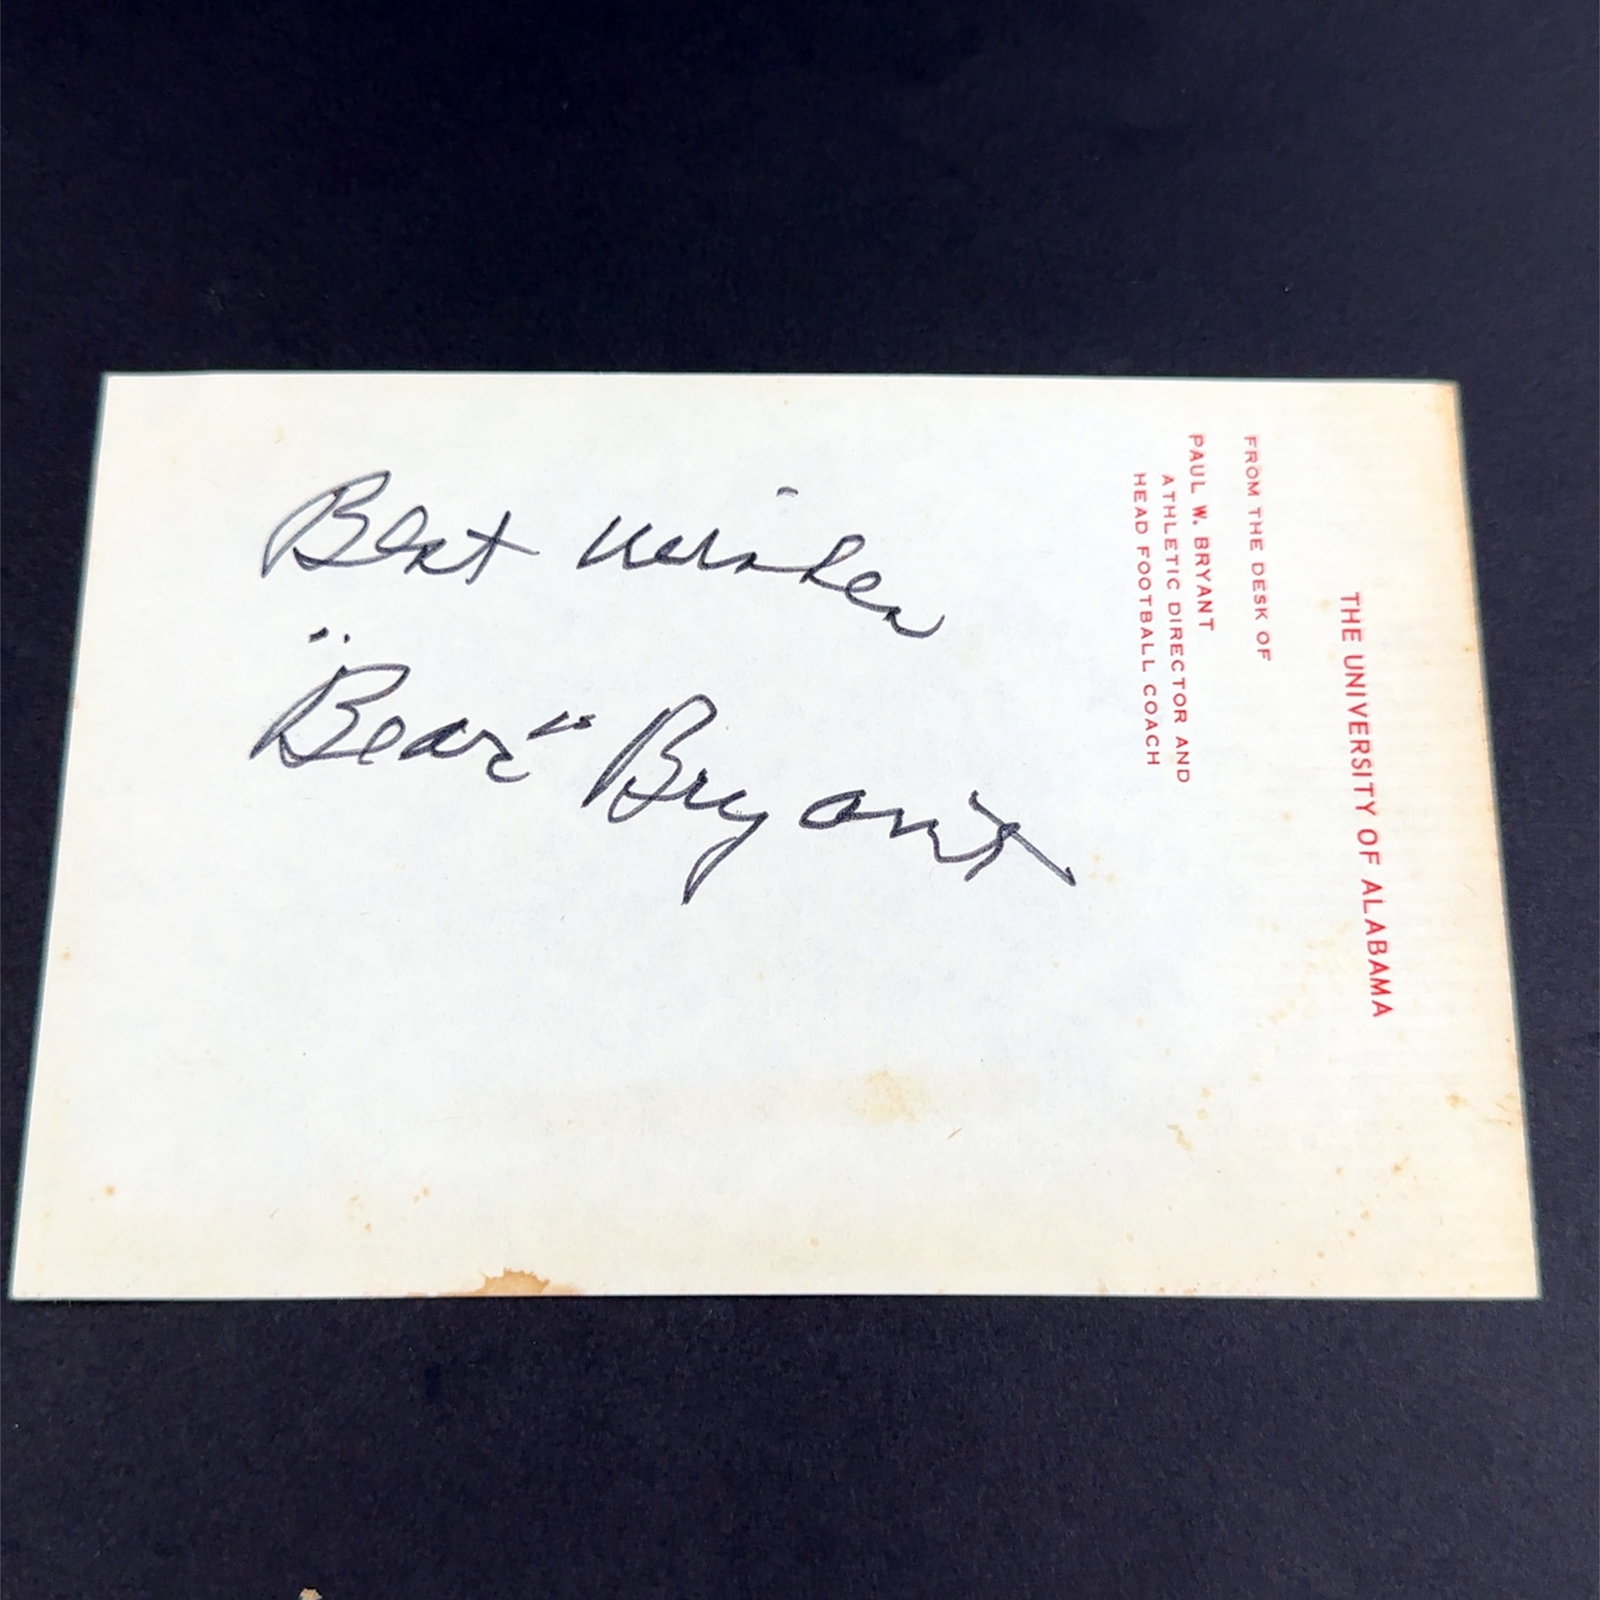 Best wishes
"Bear" Bryant
THE UNIVERSITY OF ALABAMA
FROM THE DESK OF
PAUL W. BRYANT
ATHLETIC DIRECTOR AND
HEAD FOOTBALL COACH